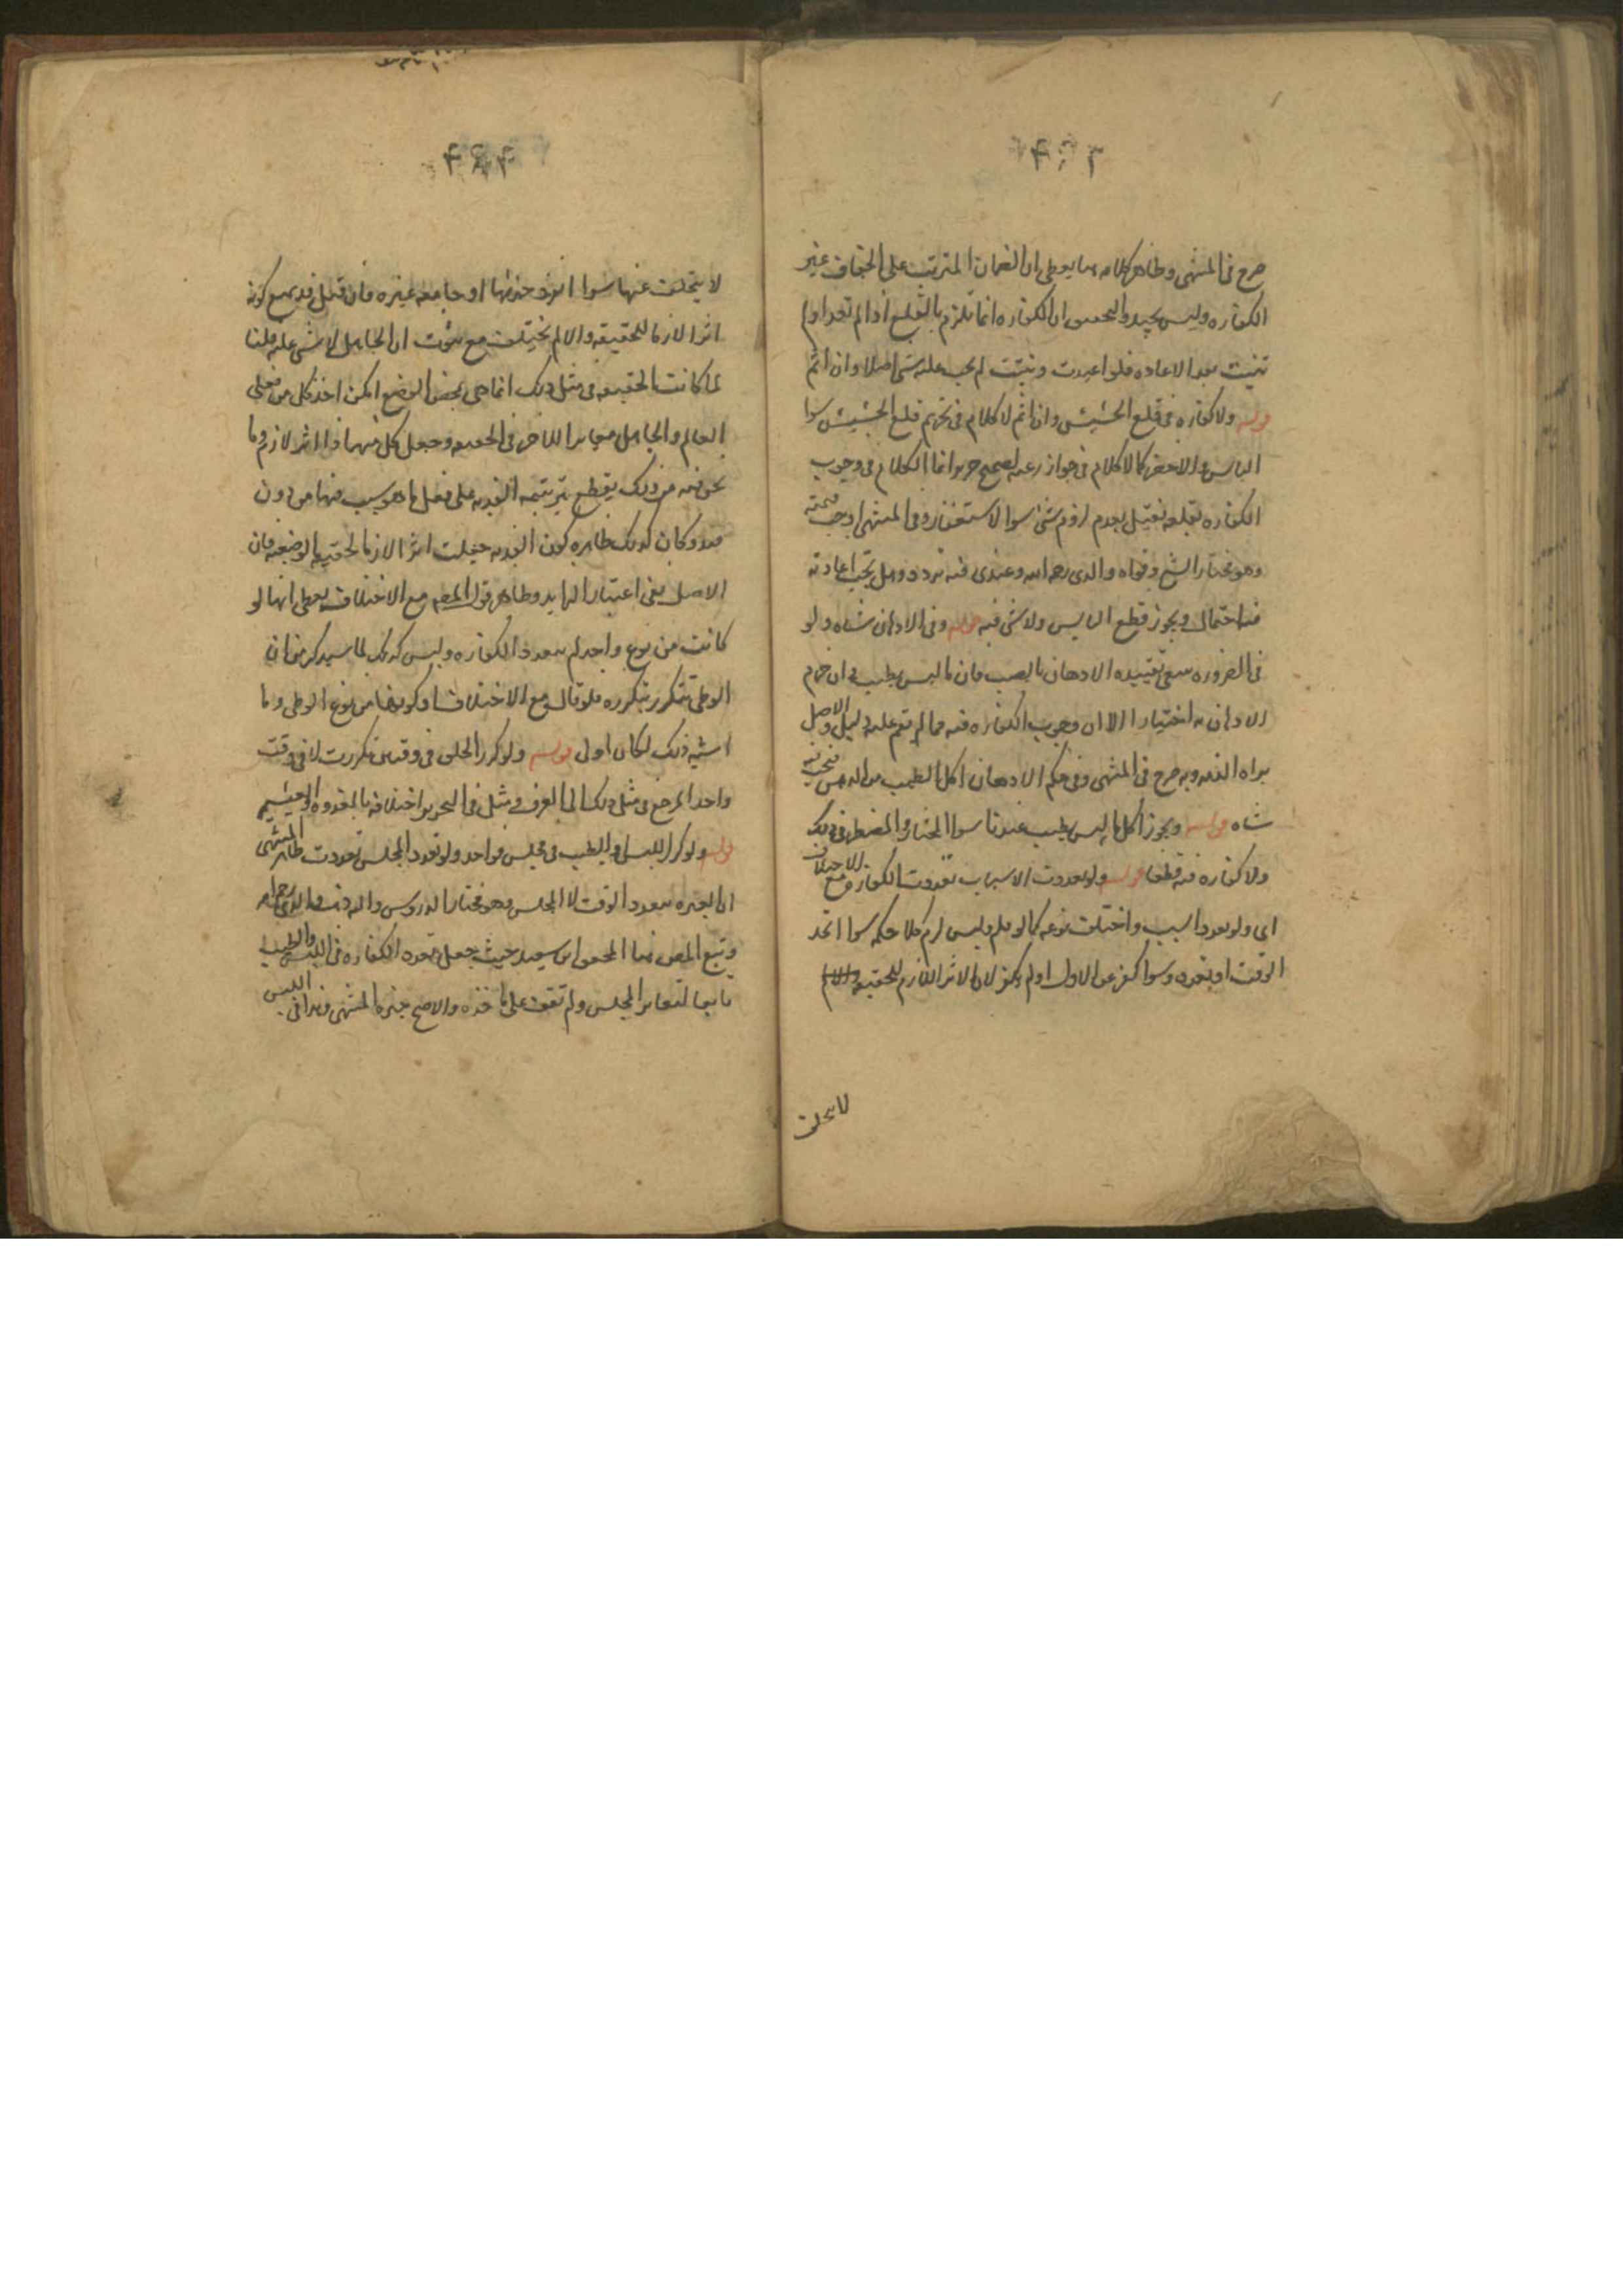 صرح فى المنتهى وظاهر كلامه هنا يعطى ان الضمان المترتب على الجفاف غير
الكفاره وليس بجيد والتحقيق ان الكفاره انما تلزم بالقلع اذا لم تعد او لم
تنبت بعد الاعاده فلو اعيدت ونبتت لم يجب عليه شى اصلا وان اثم
قوله ولا كفاره فى قلع الحشيش وان اثم لا كلام فى تحريم قلع الحشيش سوا
اليابس والاخضر كما لا كلام فى جواز رعيه لصحيح حريز انما الكلام فى وجوب
الكفاره بقلعه فقيل بعدم لزوم شى سوا الاستغفار وفى المنتهى اوجب قيمته
وهو مختار الشيخ وقواه والدى رحمه الله وعندى فيه تردد وهل تجب اعادته
فيه احتمال ويجوز قطع اليابس ولا شى فيه قوله وفى الادهان شاه ولو
فى الضروره ينبغى تقييده الادهان بالطيب فان ما ليس بطيب وان حرم
الادهان به اختيارا الا ان وجوب الكفاره فيه مما لم يقم عليه دليل والاصل
براه الذمه وبه صرح فى المنتهى وفى حكم الادهان اكل الطيب من الدهن فتجب فيه
شاه قوله ويجوز اكل ما ليس بطيب عندنا سوا المختار والمضطر فى ذلك
ولا كفاره فيه قطعا قوله ولو تعددت الاسباب تعددت الكفاره مع الاختلاف
اى ولو تعدد السبب واختلف نوعه كما لو قلم ولبس لزم كلا حكمه سوا اتحد
الوقت او تعدد وسوا كفر عن الاول او لم يكفر لان الاثر اللازم للحقيقه
لا يتخلف
لا يتخلف عنها سوا انفردت او جامعها غيره فان قيل قد يمنع كونه
اثرا لازما للحقيقه والا لم يختلف مع ثبوت ان الجاهل لا شى عليه قلنا
لما كانت الحقيقه فى مثل ذلك انما هى بمحض الوضع امكن اخذ كل من فعلى
العالم والجاهل مغايرا للاخر فى الحقيقه وجعل كل منهما ذا اثر لازم وما
نحن فيه من ذلك يقطع بترتبه الفديه على فعل ما هو سبب فيها من دون
قيد وكان كذلك ظاهره كون الفديه جعلت اثرا لازما لحقيقته الوضعيه فان
الاصل ينفى اعتبار الزايد وظاهر قول المص مع الاختلاف يعطى انها لو
كانت من نوع واحد لم تتعدد الكفاره وليس كذلك لما سيذكر من ان
الوطى تتكرر بتكرره فلو قال مع الاختلاف او كونها من نوع الوطى وما
اشبه ذلك لكان اولى قوله ولو كرر الحلق فى وقتين تكررت لا فى وقت
واحد المرجع فى مثل ذلك الى العرف ومثل فى التحرير اختلافه بالغدوه والعشيه
قوله ولو كرر اللبس او الطيب فى مجلس فواحد ولو تعدد المجلس تعددت ظاهر المنتهى
ان العبره بتعدد الوقت لا المجلس وهو مختار الدروس والدى رحمه الله
وتبع المص هنا المحقق ابن سعيد حيث جعل تعدد الكفاره فى اللبس والطيب
تابعا لتغاير المجلس ولم نقف على ماخذه والاصح خيره المنتهى وهذا فى اللبس